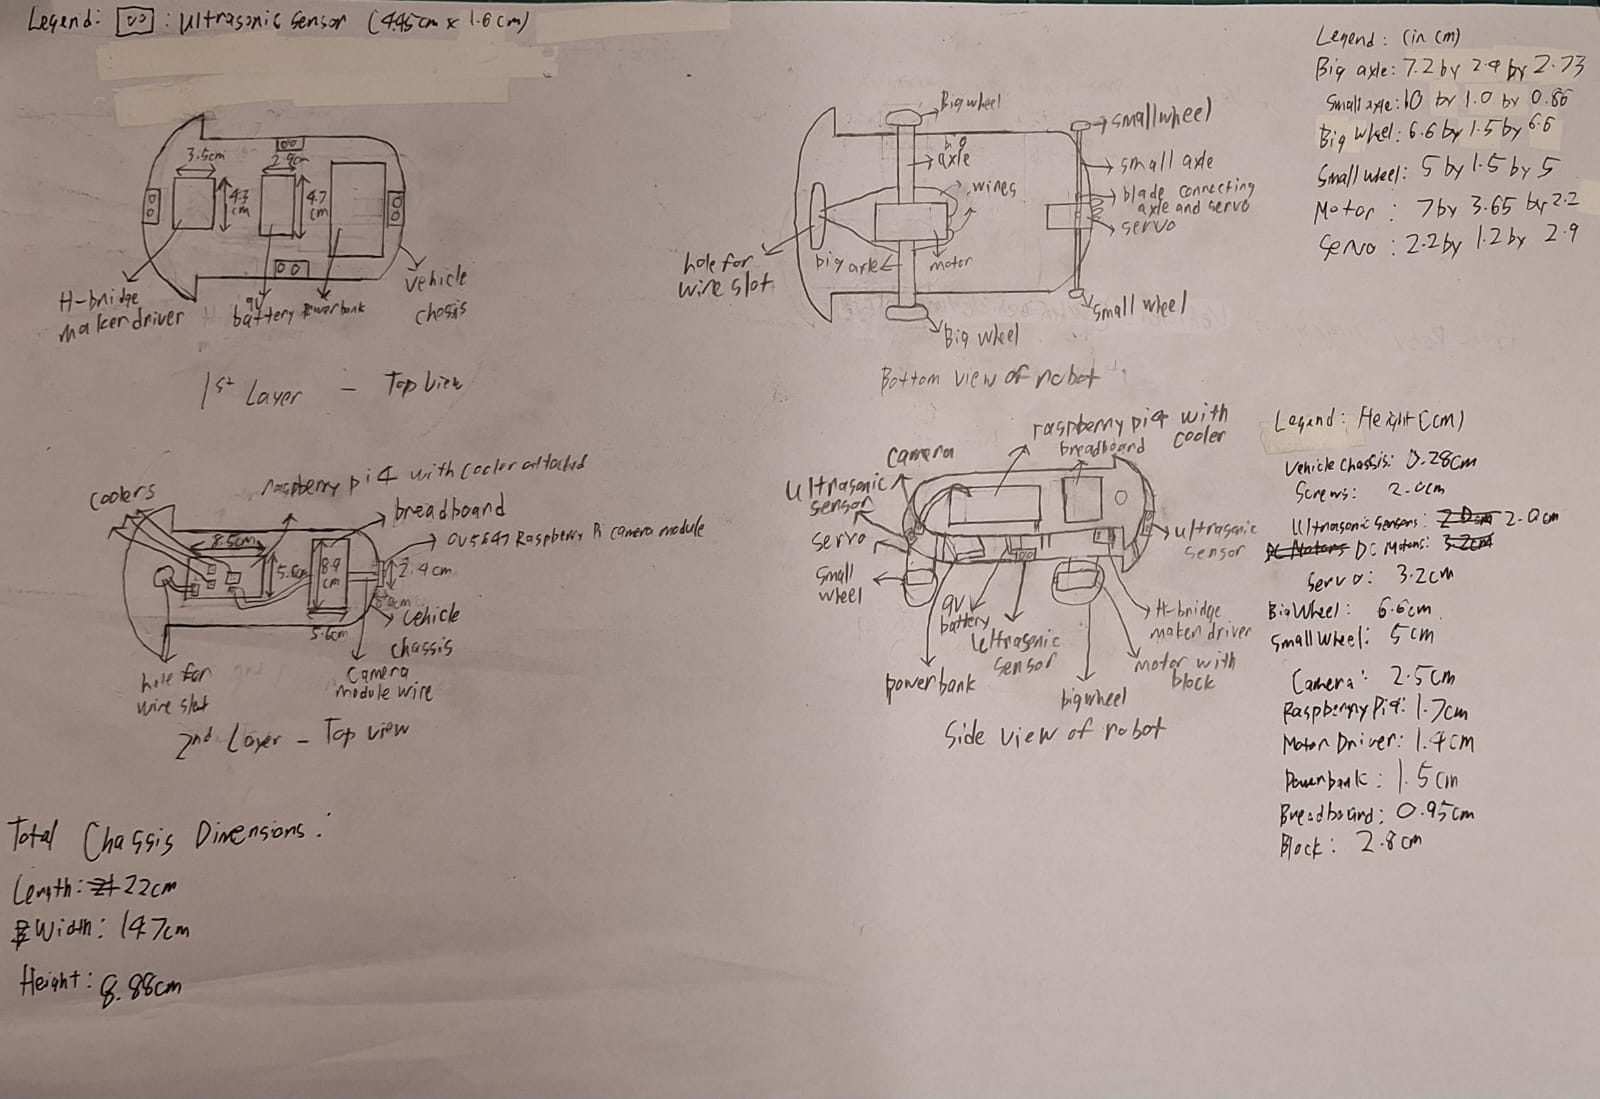 Legend: : Ultrasonic sensor (4.45cm x 1.6cm)
3.5cm
4.3
cm
2.9cm
4.7
cm
H-bridge
maker driver
9V
battery
Powerbank
vehicle
chassis
1st Layer - Top View
Big wheel
big
axle
wires
small wheel
small axle
blade connecting
axle and servo
servo
hole for
wire slot
big axle
motor
small wheel
Big wheel
Bottom view of robot
Legend: (in cm)
Big axle: 7.2 by 2.4 by 2.73
Small axle: 10 by 1.0 by 0.86
Big wheel: 6.6 by 1.5 by 6.6
Small wheel: 5 by 1.5 by 5
Motor: 7 by 3.65 by 2.2
Servo: 2.2 by 1.2 by 2.9
coolers
raspberry pi 4 with cooler attached
breadboard
OV5647 Raspberry Pi camera module
8.5cm
5.6cm
8.9
cm
2.4cm
5.6cm
vehicle
chassis
hole for
wire slot
camera
module wire
2nd Layer - Top view
raspberry pi 4 with
cooler
breadboard
camera
ultrasonic
sensor
servo
small
wheel
9V
battery
ultrasonic
sensor
powerbank
bigwheel
motor with
block
H-bridge
maker driver
ultrasonic
sensor
Side view of robot
Legend: Height (cm)
Vehicle chassis: 0.28cm
Screws: 2.0cm
Ultrasonic sensors: 2.0cm 2.0cm
DC Motors DC Motors: 3.2cm
Servo: 3.2cm
Big Wheel: 6.6cm
Small Wheel: 5cm
Camera: 2.5cm
Raspberry Pi 4: 1.7cm
Motor Driver: 1.4cm
Powerbank: 1.5cm
Breadboard: 0.95cm
Block: 2.8cm
Total Chassis Dimensions:
Length: 21 22cm
Width: 14.7cm
Height: 8.88cm